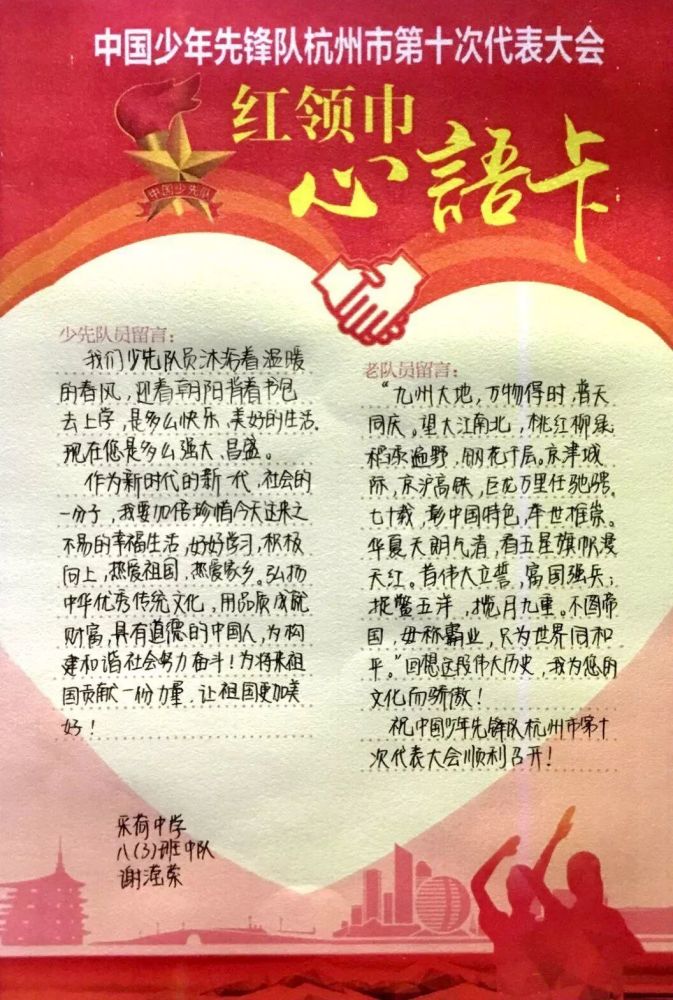 中国少年先锋队杭州市第十次代表大会
红领巾
心語卡
中国少先队
少先队员留言:
我们少先队员沐浴着温暖
的春风,迎着朝阳背着书包
去上学,是多么快乐、美好的生活.
现在您是多么强大、昌盛。
作为新时代的新一代、社会的
一份子,我要加倍珍惜今天这来之
不易的幸福生活,好好学习,积极
向上,热爱祖国,热爱家乡。弘扬
中华优秀传统文化,用品质成就
财富,具有道德的中国人,为构
建和谐社会努力奋斗!为将来祖
国贡献一份力量,让祖国更加美
好!
采荷中学
八(3)班中队
谢滢荣
老队员留言:
“九州大地,万物得时,普天
同庆。望大江南北,桃红柳绿
稻凉遍野,钢花千层。京津城
际,京沪高铁,巨龙万里任驰骋。
七十载,彰中国特色,举世推崇。
华夏天朗气清,看五星旗帜漫
天红。首伟大立誓,富国强兵;
捉鳖五洋,揽月九重。不图帝
国,毋称霸业,只为世界同和
平。”回想这段伟大历史,我为您的
文化而骄傲!
祝中国少年先锋队杭州市第十
次代表大会顺利召开!